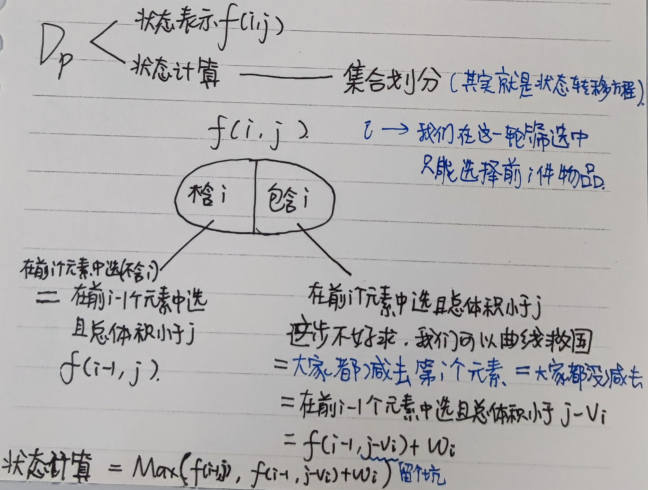 Dp
状态表示 f(i,j)
状态计算 —— 集合划分 (其实就是状态转移方程)
f(i,j)
i → 我们在这一轮筛选中
只能选择前i件物品.
不含i 包含i
在前i个元素中选(不含i)
= 在前i-1个元素中选
且总体积小于j
f(i-1,j).
在前i个元素中选且总体积小于j
这步不好求,我们可以曲线救国
=大家都减去第i个元素 =大家都没减去
=在前i-1个元素中选且总体积小于 j-Vi
= f(i-1,j-Vi)+Wi
状态计算 = Max(f(i-1,j), f(i-1,j-Vi)+Wi) 留个坑